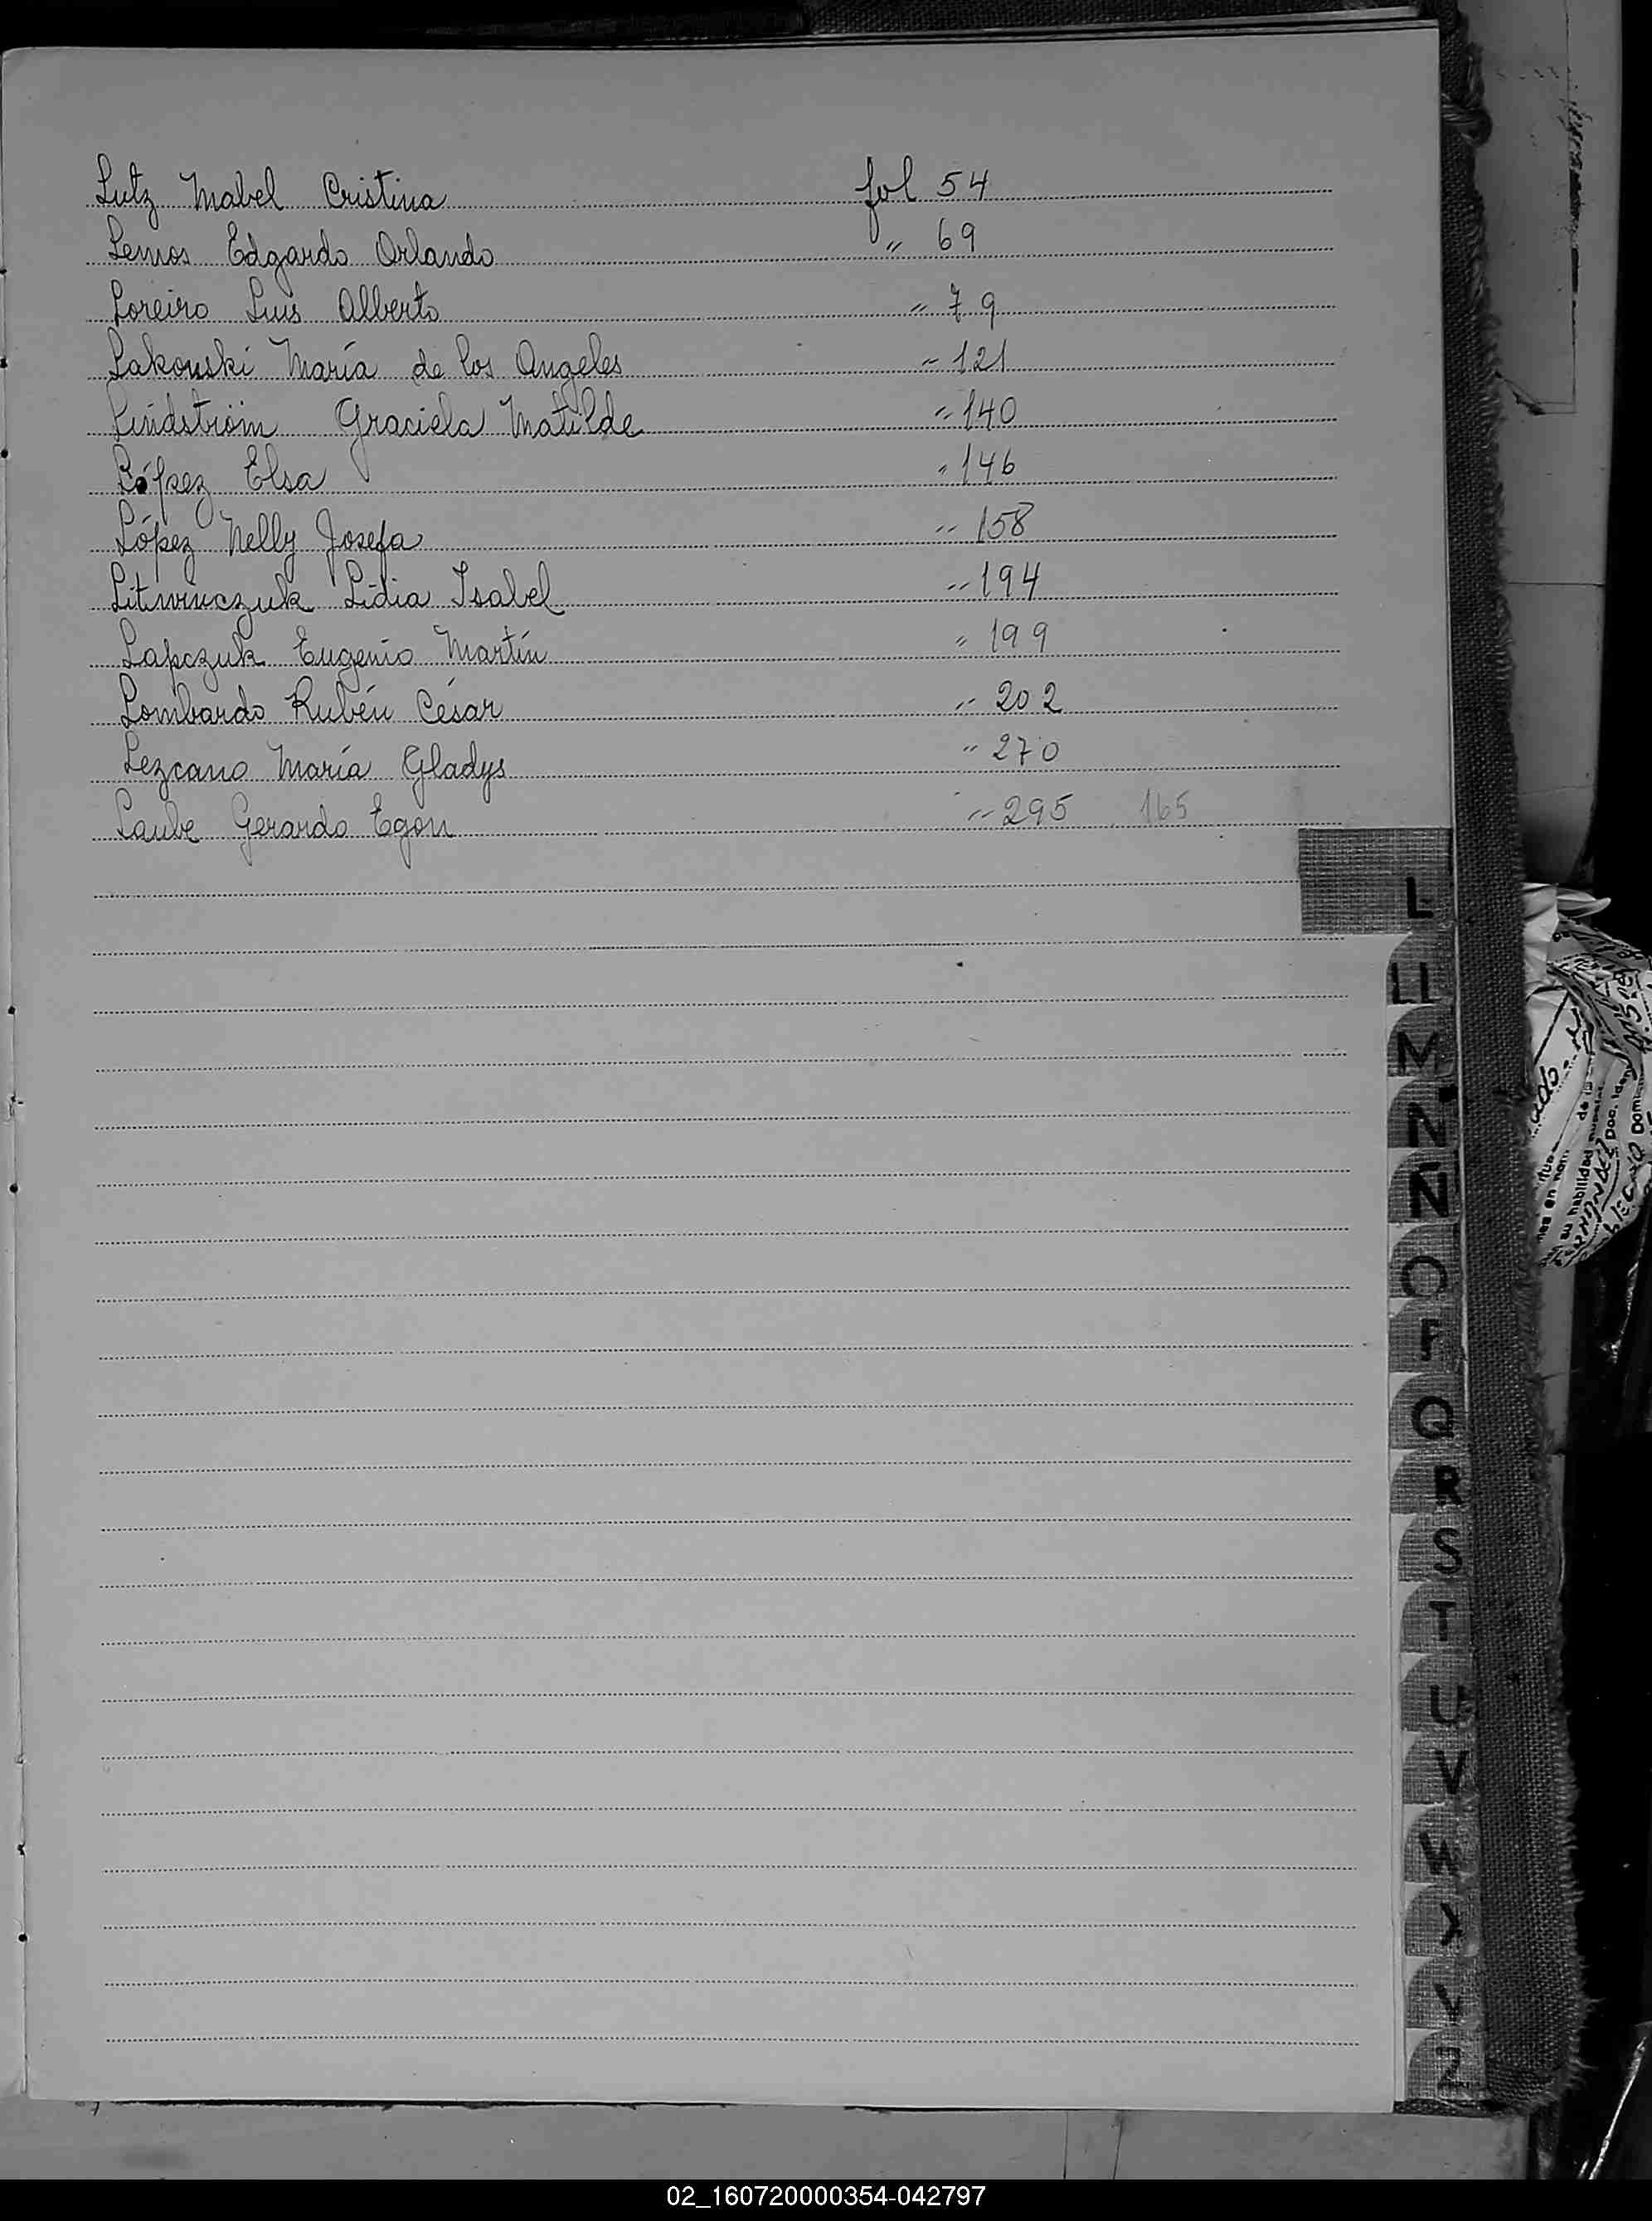 Lutz Mabel Cristina fol 54
Lemos Edgardo Orlando " 69
Loreiro Luis Alberto " 79
Lakouski María de los Angeles " 121
Lindström Graciela Matilde " 140
López Elsa " 146
López Nelly Josefa " 158
Litwinczuk Lidia Isabel " 194
Lapczuk Eugenio Martín " 199
Lombardo Rubén César " 202
Lezcano María Gladys " 270
Laube Gerardo Egon " 295 165
L
Ll
M
N
Ñ
O
P
Q
R
S
T
U
V
W
X
Y
Z
02_160720000354-042797